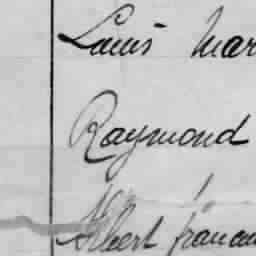 Louis Mar
Raymond
Albert franc